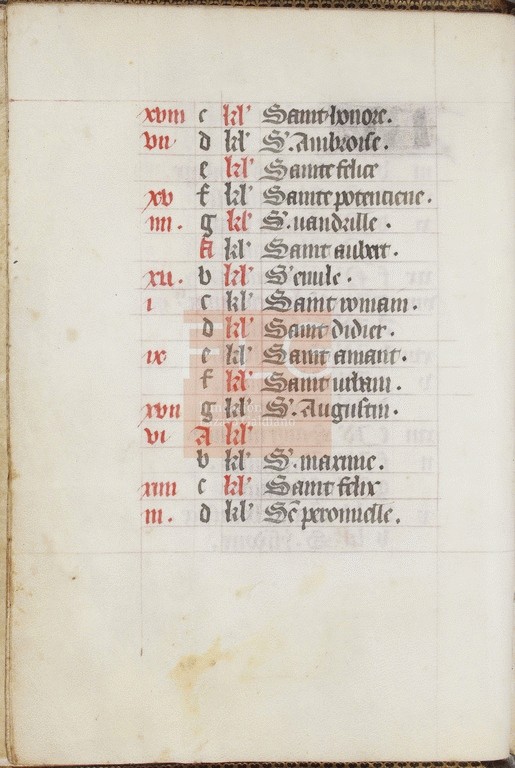 xviii c kl' Saint honore.
vii d kl' S'. Ambroise.
e kl' Sainte felice
xv f kl' Sainte potenciene.
iiii. g kl' S'. uandrille.
A kl' Saint aubert.
xii. b kl' S' emile.
i c kl' Saint romain.
d kl' Saint didier.
ix e kl' Saint amant.
f kl' Saint urbain.
xvii g kl' S'. Augustin.
vi A kl'
b kl' S'. maxime.
xiiii c kl' Saint felix
iii. d kl' Se peronnelle.